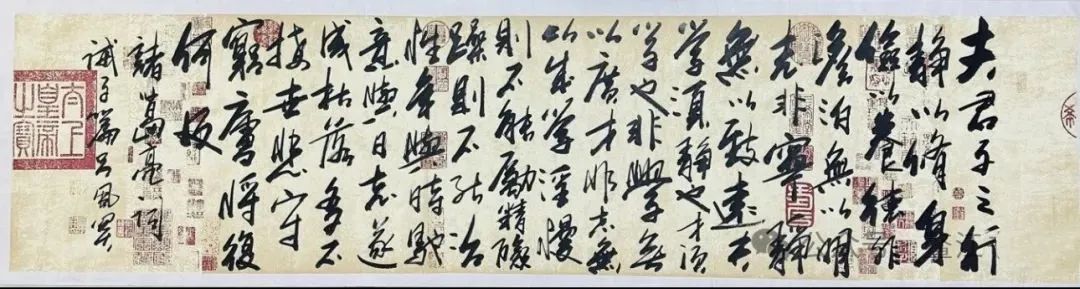 夫君子之行
静以脩身
儉以養德非
澹泊無以明
志非寧静
無以致遠夫
學須静也才須
學也非學無
以廣才非志無
以成學淫慢
則不能勵精險
躁則不能治
性年與時馳
意與日去遂
成枯落多不
接世悲守
窮廬將復
何及
諸葛亮詞
誡子篇
太上皇帝之寶